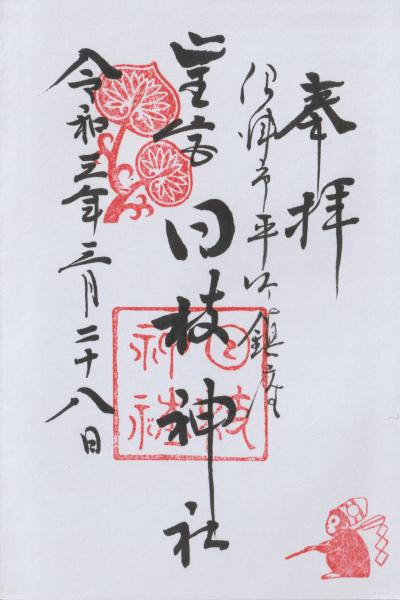 奉拝
沼津市平町鎮座
日枝神社
令和三年三月二十八日
日枝
神社